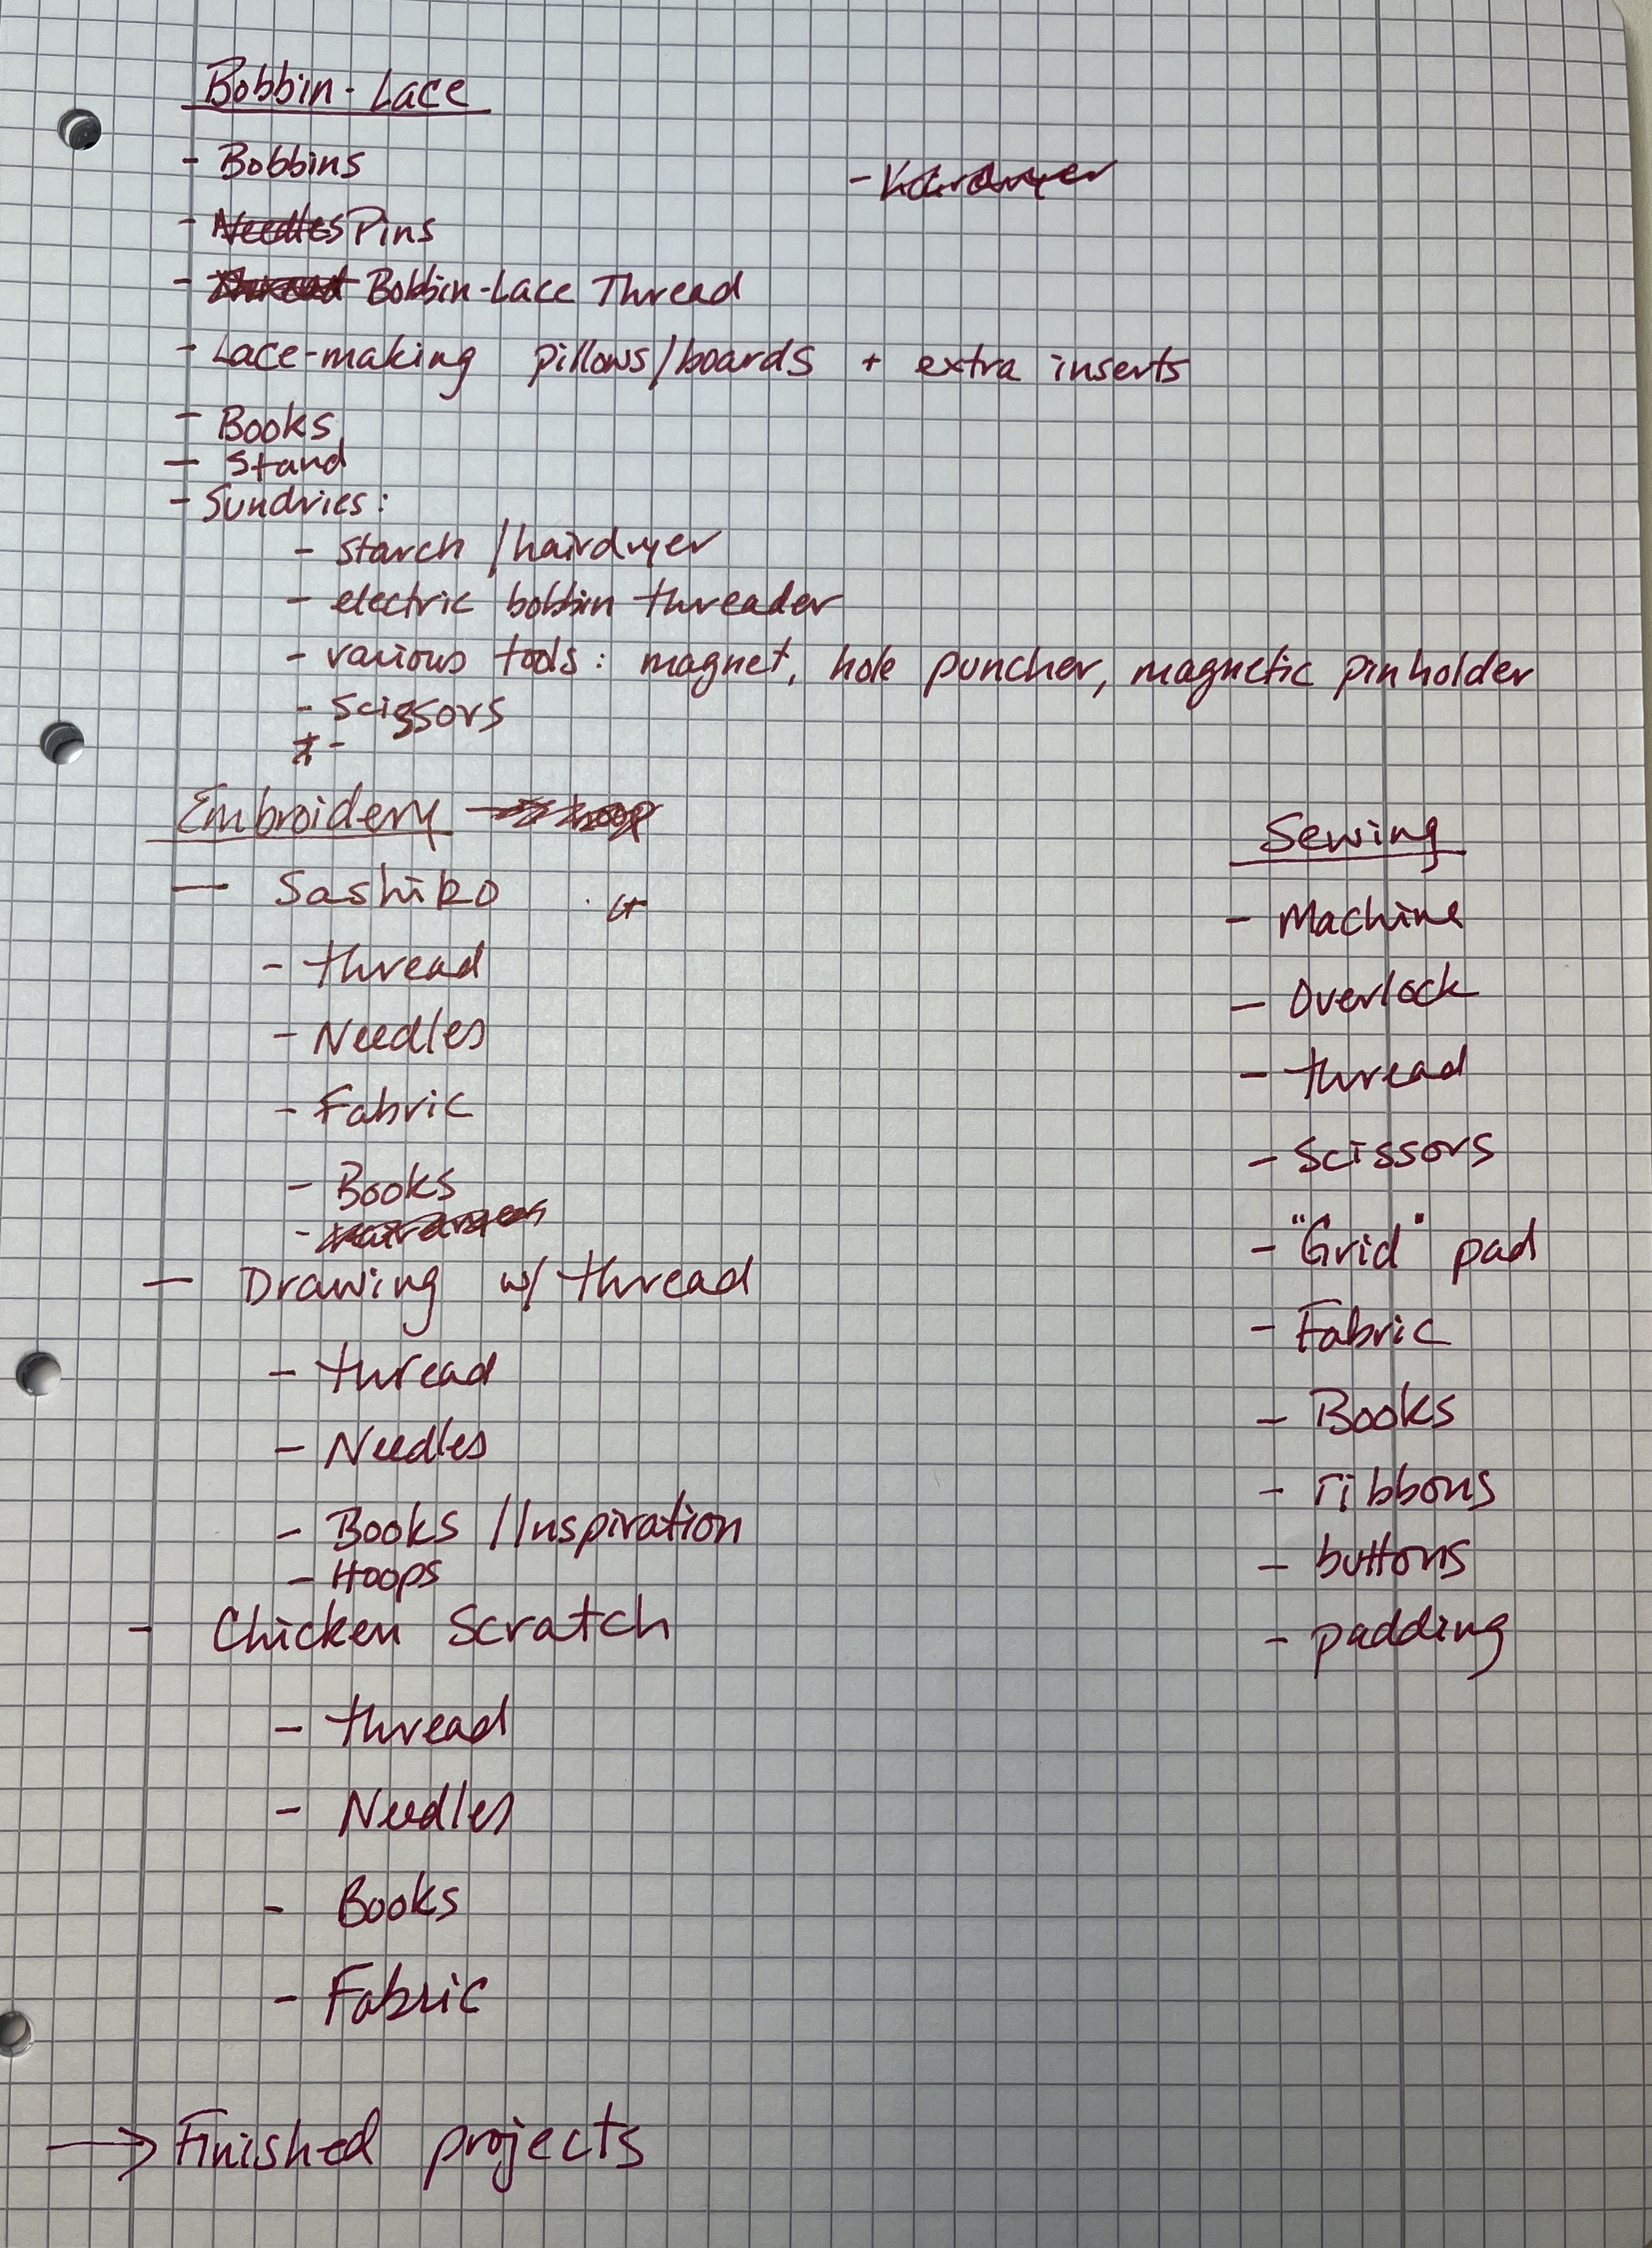 Bobbin-Lace
- Bobbins
- Hairdryer
- Needles Pins
- Thread Bobbin-Lace Thread
- Lace-making pillows/boards + extra inserts
- Books
- Stand
- Sundries:
- starch / hairdryer
- electric bobbin threader
- various tools: magnet, hole puncher, magnetic pinholder
- scissors
-
Embroidery
- Sashiko
- thread
- Needles
- Fabric
- Books
-
- Drawing w/ thread
- thread
- Needles
- Books / Inspiration
- Hoops
- Chicken Scratch
- thread
- Needles
- Books
- Fabric
Sewing
- Machine
- Overlock
- thread
- Scissors
- "Grid" pad
- Fabric
- Books
- ribbons
- buttons
- padding
→ Finished projects